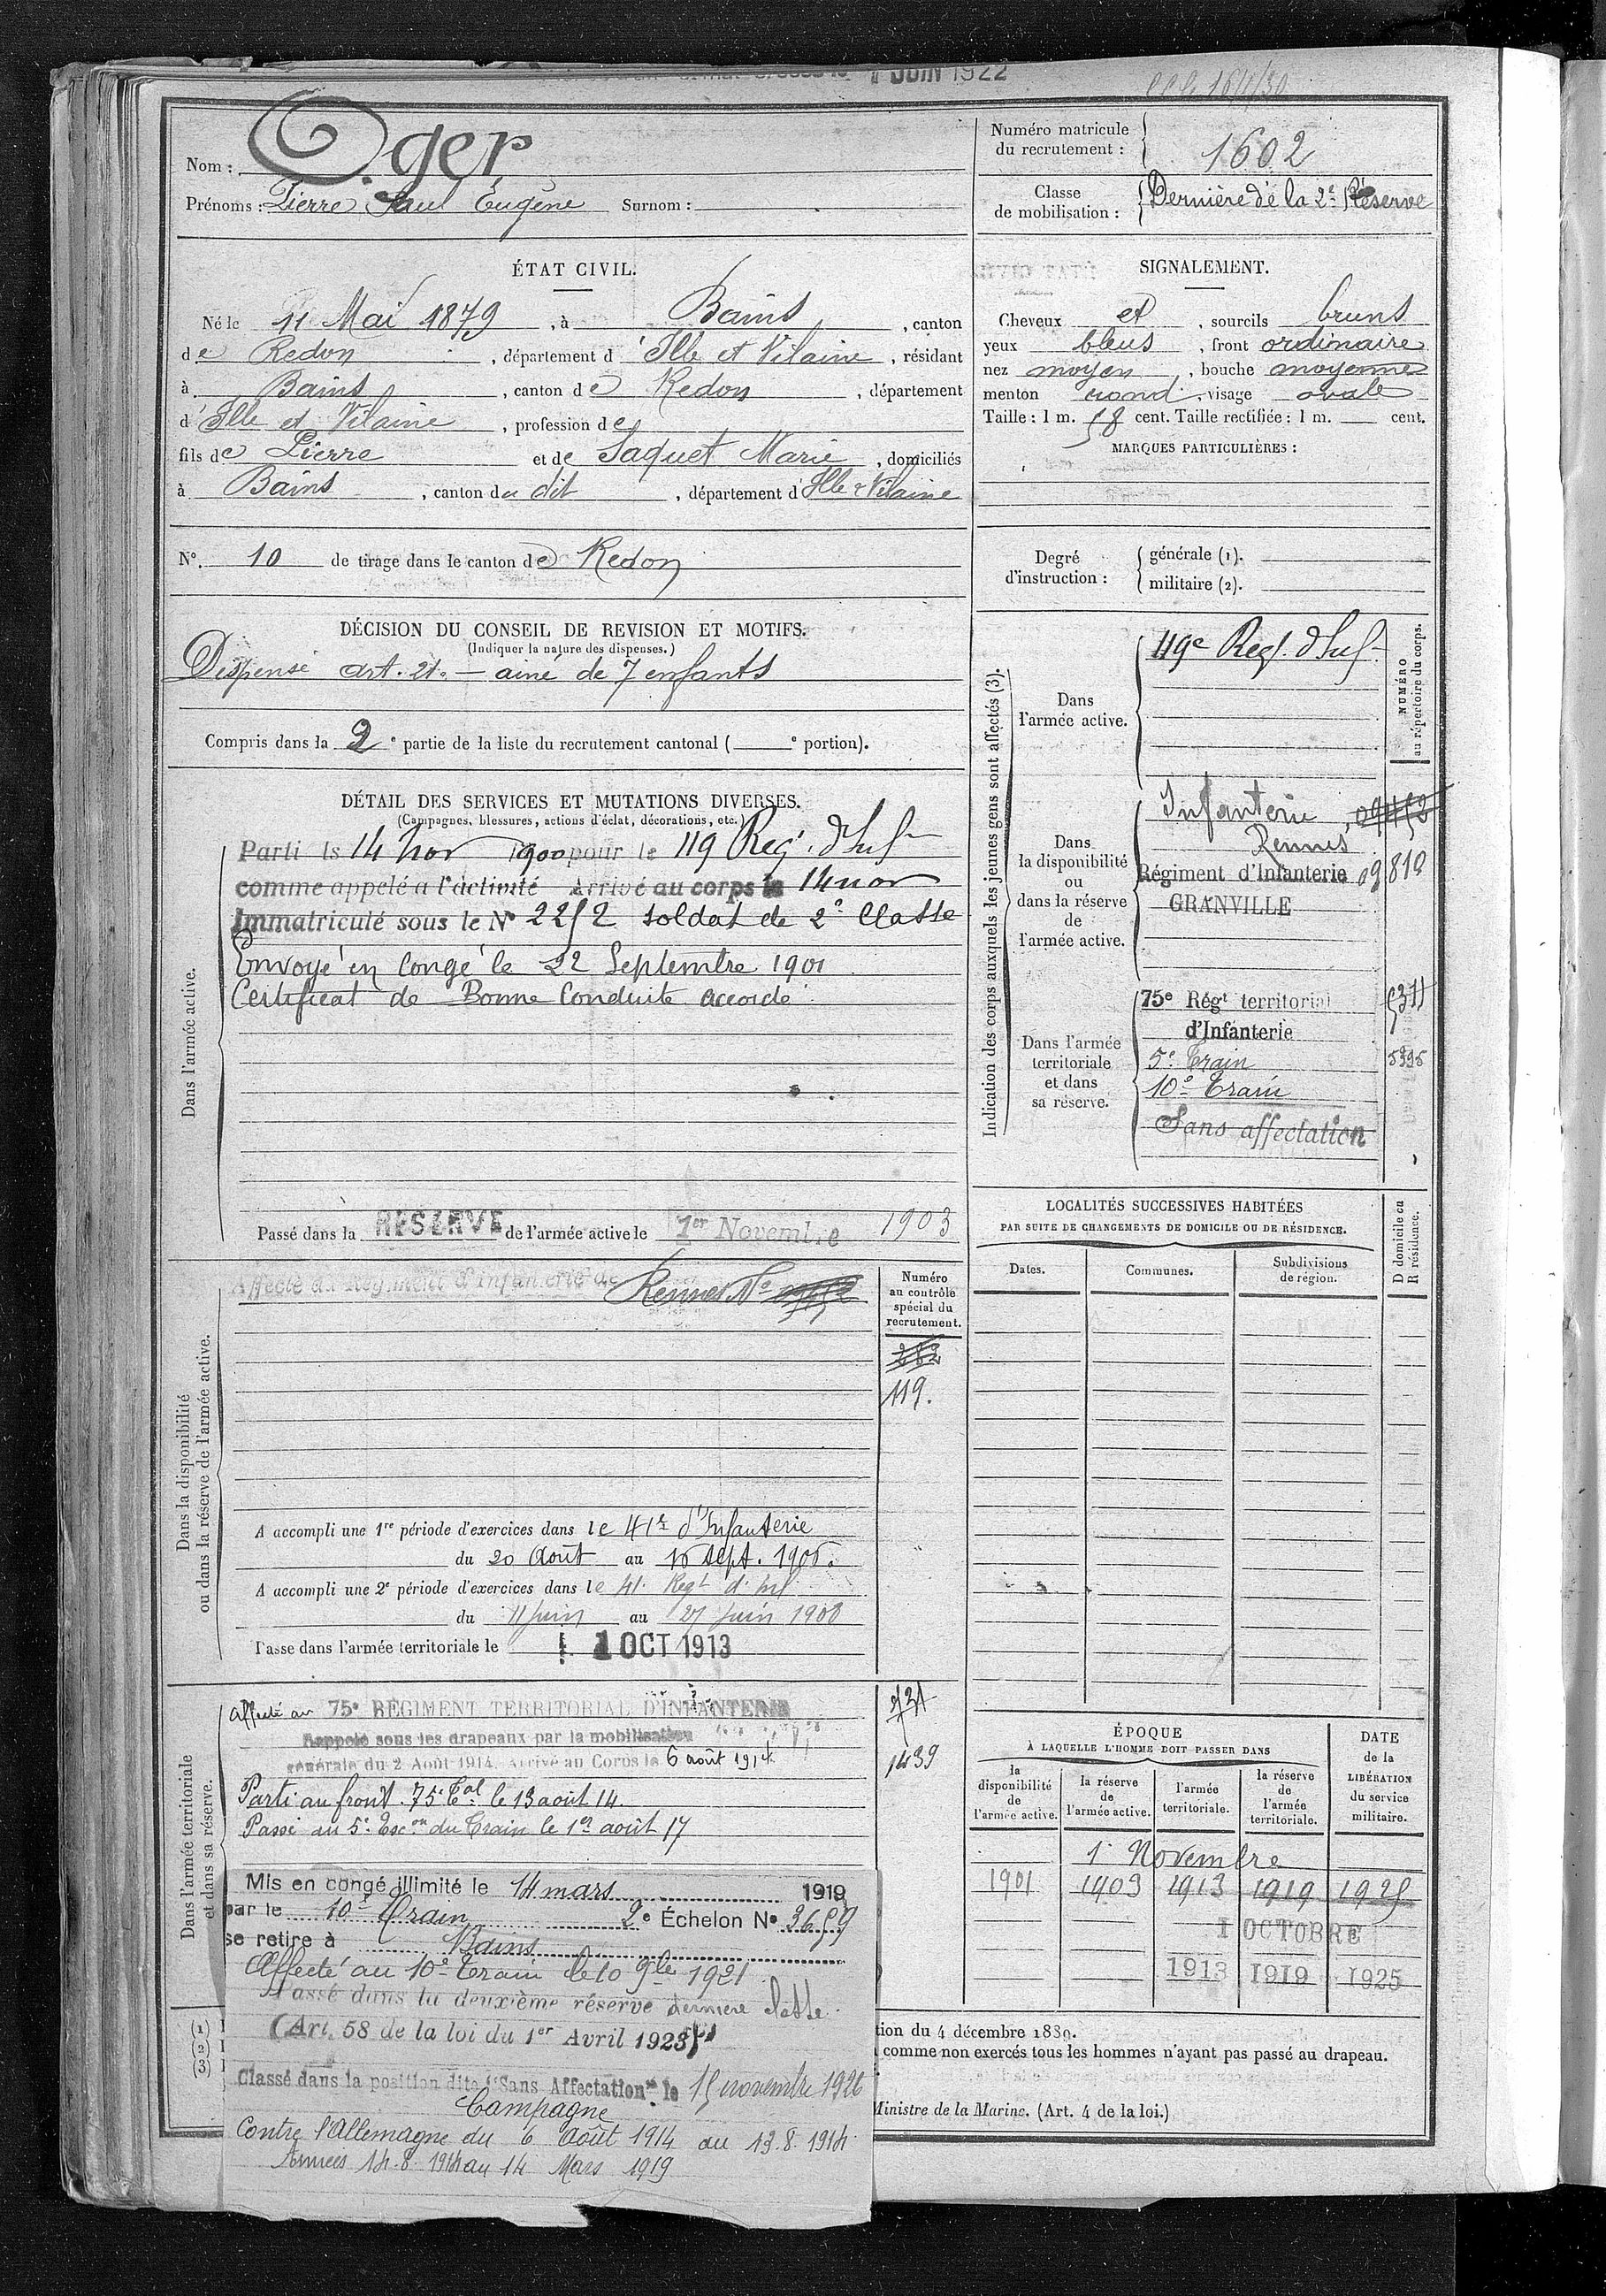 1 JUIN 1922
Nom : Oger
Prénoms : Pierre Paul Eugène Surnom :
Numéro matricule du recrutement : 1602
Classe de mobilisation : Dernière de la 2e Réserve
ÉTAT CIVIL.
Né le 11 Mai 1879, à Bains, canton
de Redon, département d'Ille et Vilaine, résidant
à Bains, canton de Redon, département
d'Ille et Vilaine, profession de
fils de Pierre et de Saquet Marie, domiciliés
à Bains, canton du dit, département d'Ille & Vilaine
SIGNALEMENT.
Cheveux et, sourcils bruns
yeux bleus, front ordinaire
nez moyen, bouche moyenne
menton rond, visage ovale
Taille : 1 m. 58 cent. Taille rectifiée : 1 m. cent.
MARQUES PARTICULIÈRES :
N°. 10 de tirage dans le canton de Redon
Degré d'instruction :
générale (1).
militaire (2).
DÉCISION DU CONSEIL DE REVISION ET MOTIFS.
(Indiquer la nature des dispenses.)
Dispensé art. 21. — ainé de 7 enfants
Compris dans la 2e partie de la liste du recrutement cantonal ( e portion).
DÉTAIL DES SERVICES ET MUTATIONS DIVERSES.
(Campagnes, blessures, actions d'éclat, décorations, etc.)
Dans l'armée active.
Parti le 14 nov 1900 pour le 119 Reg. d'Inf
comme appelé a l'activité Arrivé au corps le 14 nov
Immatriculé sous le N° 2252 soldat de 2e Classe
Envoyé en congé le 22 Septembre 1901
Certificat de Bonne Conduite accordé
Passé dans la RESERVE de l'armée active le 1er Novembre 1903
Indication des corps auxquels les jeunes gens sont affectés (3).
NUMÉRO au répertoire du corps.
Dans l'armée active.
119e Reg. d'Inf
Dans la disponibilité ou dans la réserve de l'armée active.
Infanterie
Rennes
Régiment d'Infanterie 09810
GRANVILLE
Dans l'armée territoriale et dans sa réserve.
75e Régt territorial
d'Infanterie
5e Train 5395
10e Train
Sans affectation
LOCALITÉS SUCCESSIVES HABITÉES
PAR SUITE DE CHANGEMENTS DE DOMICILE OU DE RÉSIDENCE.
Dates. Communes. Subdivisions de région.
D domicile ou R résidence.
Dans la disponibilité ou dans la réserve de l'armée active.
Affecté au Régiment d'Infanterie de Rennes No
Numéro au contrôle spécial du recrutement.
119.
A accompli une 1re période d'exercices dans le 41e d'Infanterie
du 20 Août au 16 sept. 1906.
A accompli une 2e période d'exercices dans le 41 Regt d'Inf
du 11 Juin au 27 Juin 1908
Passé dans l'armée territoriale le 1 OCT 1913
Dans l'armée territoriale et dans sa réserve.
Affecté au 75e RÉGIMENT TERRITORIAL D'INFANTERIE
Rappelé sous les drapeaux par la mobilisation
générale du 2 Août 1914. Arrivé au Corps le 6 août 1914
1439
Parti au front. 75e Tal le 13 août 14.
Passé au 5e Escon du Train le 1er août 17
Mis en congé illimité le 14 mars 1919
par le 10e Train 2e Échelon N° 3659
se retire à Bains
Affecté au 10e Train le 10 9bre 1921
Passé dans la deuxième réserve dernière classe
(Art. 58 de la loi du 1er Avril 1923)
Classé dans la position dite "Sans Affectation" le 15 novembre 1926
Campagne
Contre l'Allemagne du 6 Août 1914 au 13.8.1914
Armées 14.8.1914 au 14 Mars 1919
ÉPOQUE
À LAQUELLE L'HOMME DOIT PASSER DANS
la disponibilité de l'armée active.
la réserve de l'armée active.
l'armée territoriale.
la réserve de l'armée territoriale.
DATE de la LIBÉRATION du service militaire.
1er Novembre
1901 1903 1913 1919 1925
1 OCTOBRE
1913 1919 1925
(1)
(2)
(3)
tion du 4 décembre 1889.
comme non exercés tous les hommes n'ayant pas passé au drapeau.
Ministre de la Marine. (Art. 4 de la loi.)